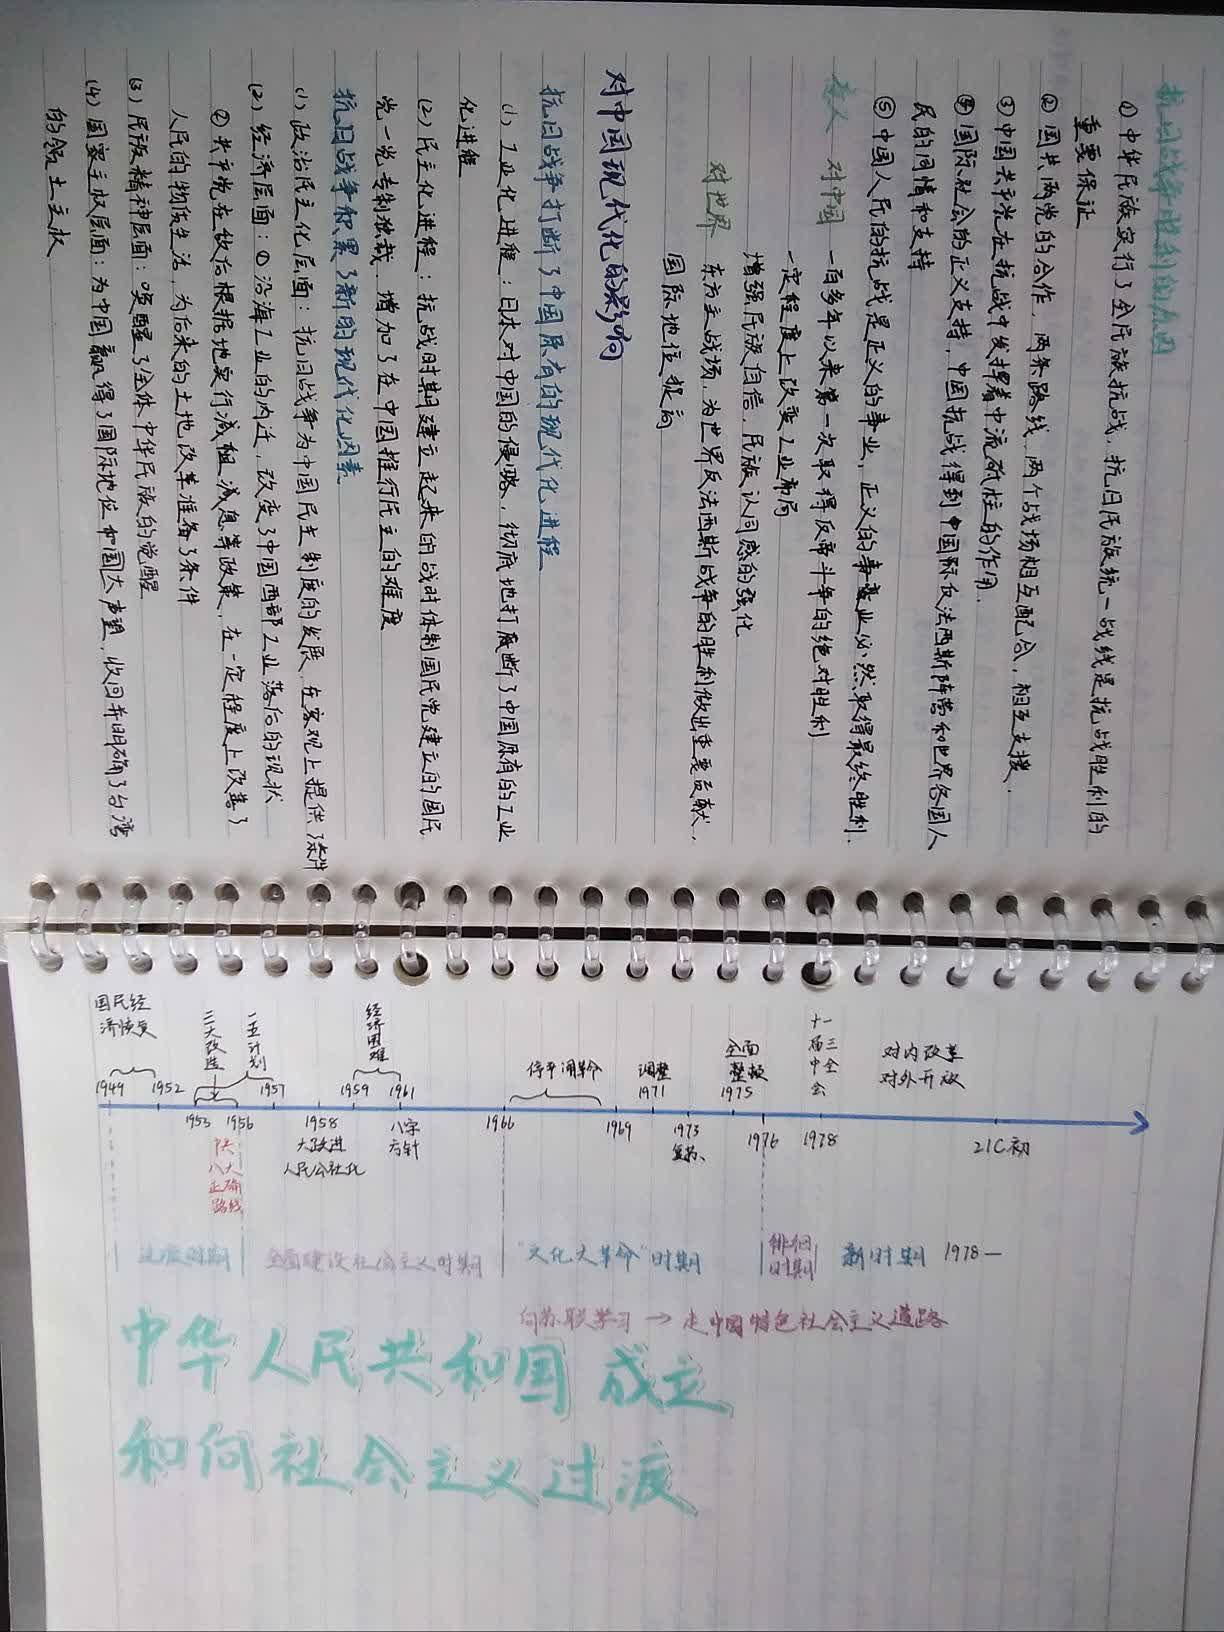 抗日战争胜利的原因
① 中华民族实行了全民族抗战，抗日民族统一战线是抗战胜利的
重要保证
② 国共两党的合作，两条路线，两个战场相互配合，相互支援.
③ 中国共产党在抗战中发挥着中流砥柱的作用.
④ 国际社会的正义支持，中国抗战得到中国际反法西斯阵营和世界各国人
民的同情和支持
⑤ 中国人民的抗战是正义的事业，正义的事业必然取得最终胜利.
意义 对中国 一百多年以来第一次取得反帝斗争的绝对胜利
一定程度上改变工业布局
增强民族自信，民族认同感的强化
对世界 东方主战场，为世界反法西斯战争的胜利做出重要贡献，
国际地位提高
对中国现代化的影响
抗日战争打断了中国原有的现代化进程
(1) 工业化进程：日本对中国的侵略，彻底地打断了中国原有的工业
化进程
(2) 民主化进程：抗战时期建立起来的战时体制国民党建立的国民
党一党专制独裁，增加了在中国推行民主的难度
抗日战争积累了新的现代化因素
(1) 政治民主化层面：抗日战争为中国民主制度的发展，在客观上提供了条件
(2) 经济层面：① 沿海工业的内迁，改变了中国西部工业落后的现状
② 共产党在敌后根据地实行减租减息等政策，在一定程度上改善了
人民的物质生活，为后来的土地改革准备了条件
(3) 民族精神层面：唤醒了全体中华民族的觉醒
(4) 国家主权层面：为中国赢得了国际地位和国大声望，收回并明确了台湾
的领土主权
国民经
济恢复
三大改造
一五计划
经济困难
停止调革命
调整
全面
整顿
十一届三中全会
对内改革
对外开放
1949 1952 1957 1959 1961 1971 1975
1953 1956 1958 八字 1966 1969 1973 1976 1978 21C初
大跃进 方针 复苏、
人民公社化
中共
八大
正确
路线
过渡时期 全面建设社会主义时期 "文化大革命"时期 徘徊
时期 新时期 1978—
向苏联学习 → 走中国特色社会主义道路
中华人民共和国成立
和向社会主义过渡